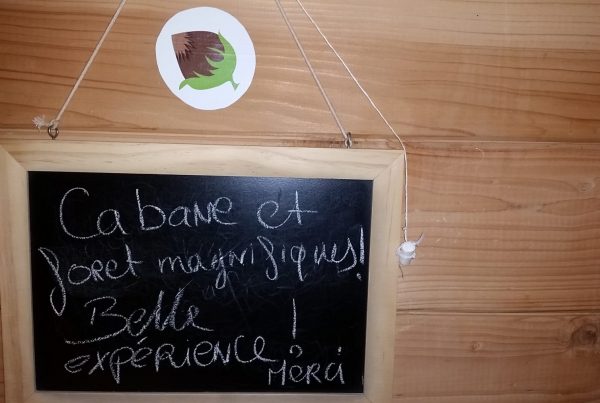 Cabane et
foret magnifiques!
Belle
expérience !
Mêrci